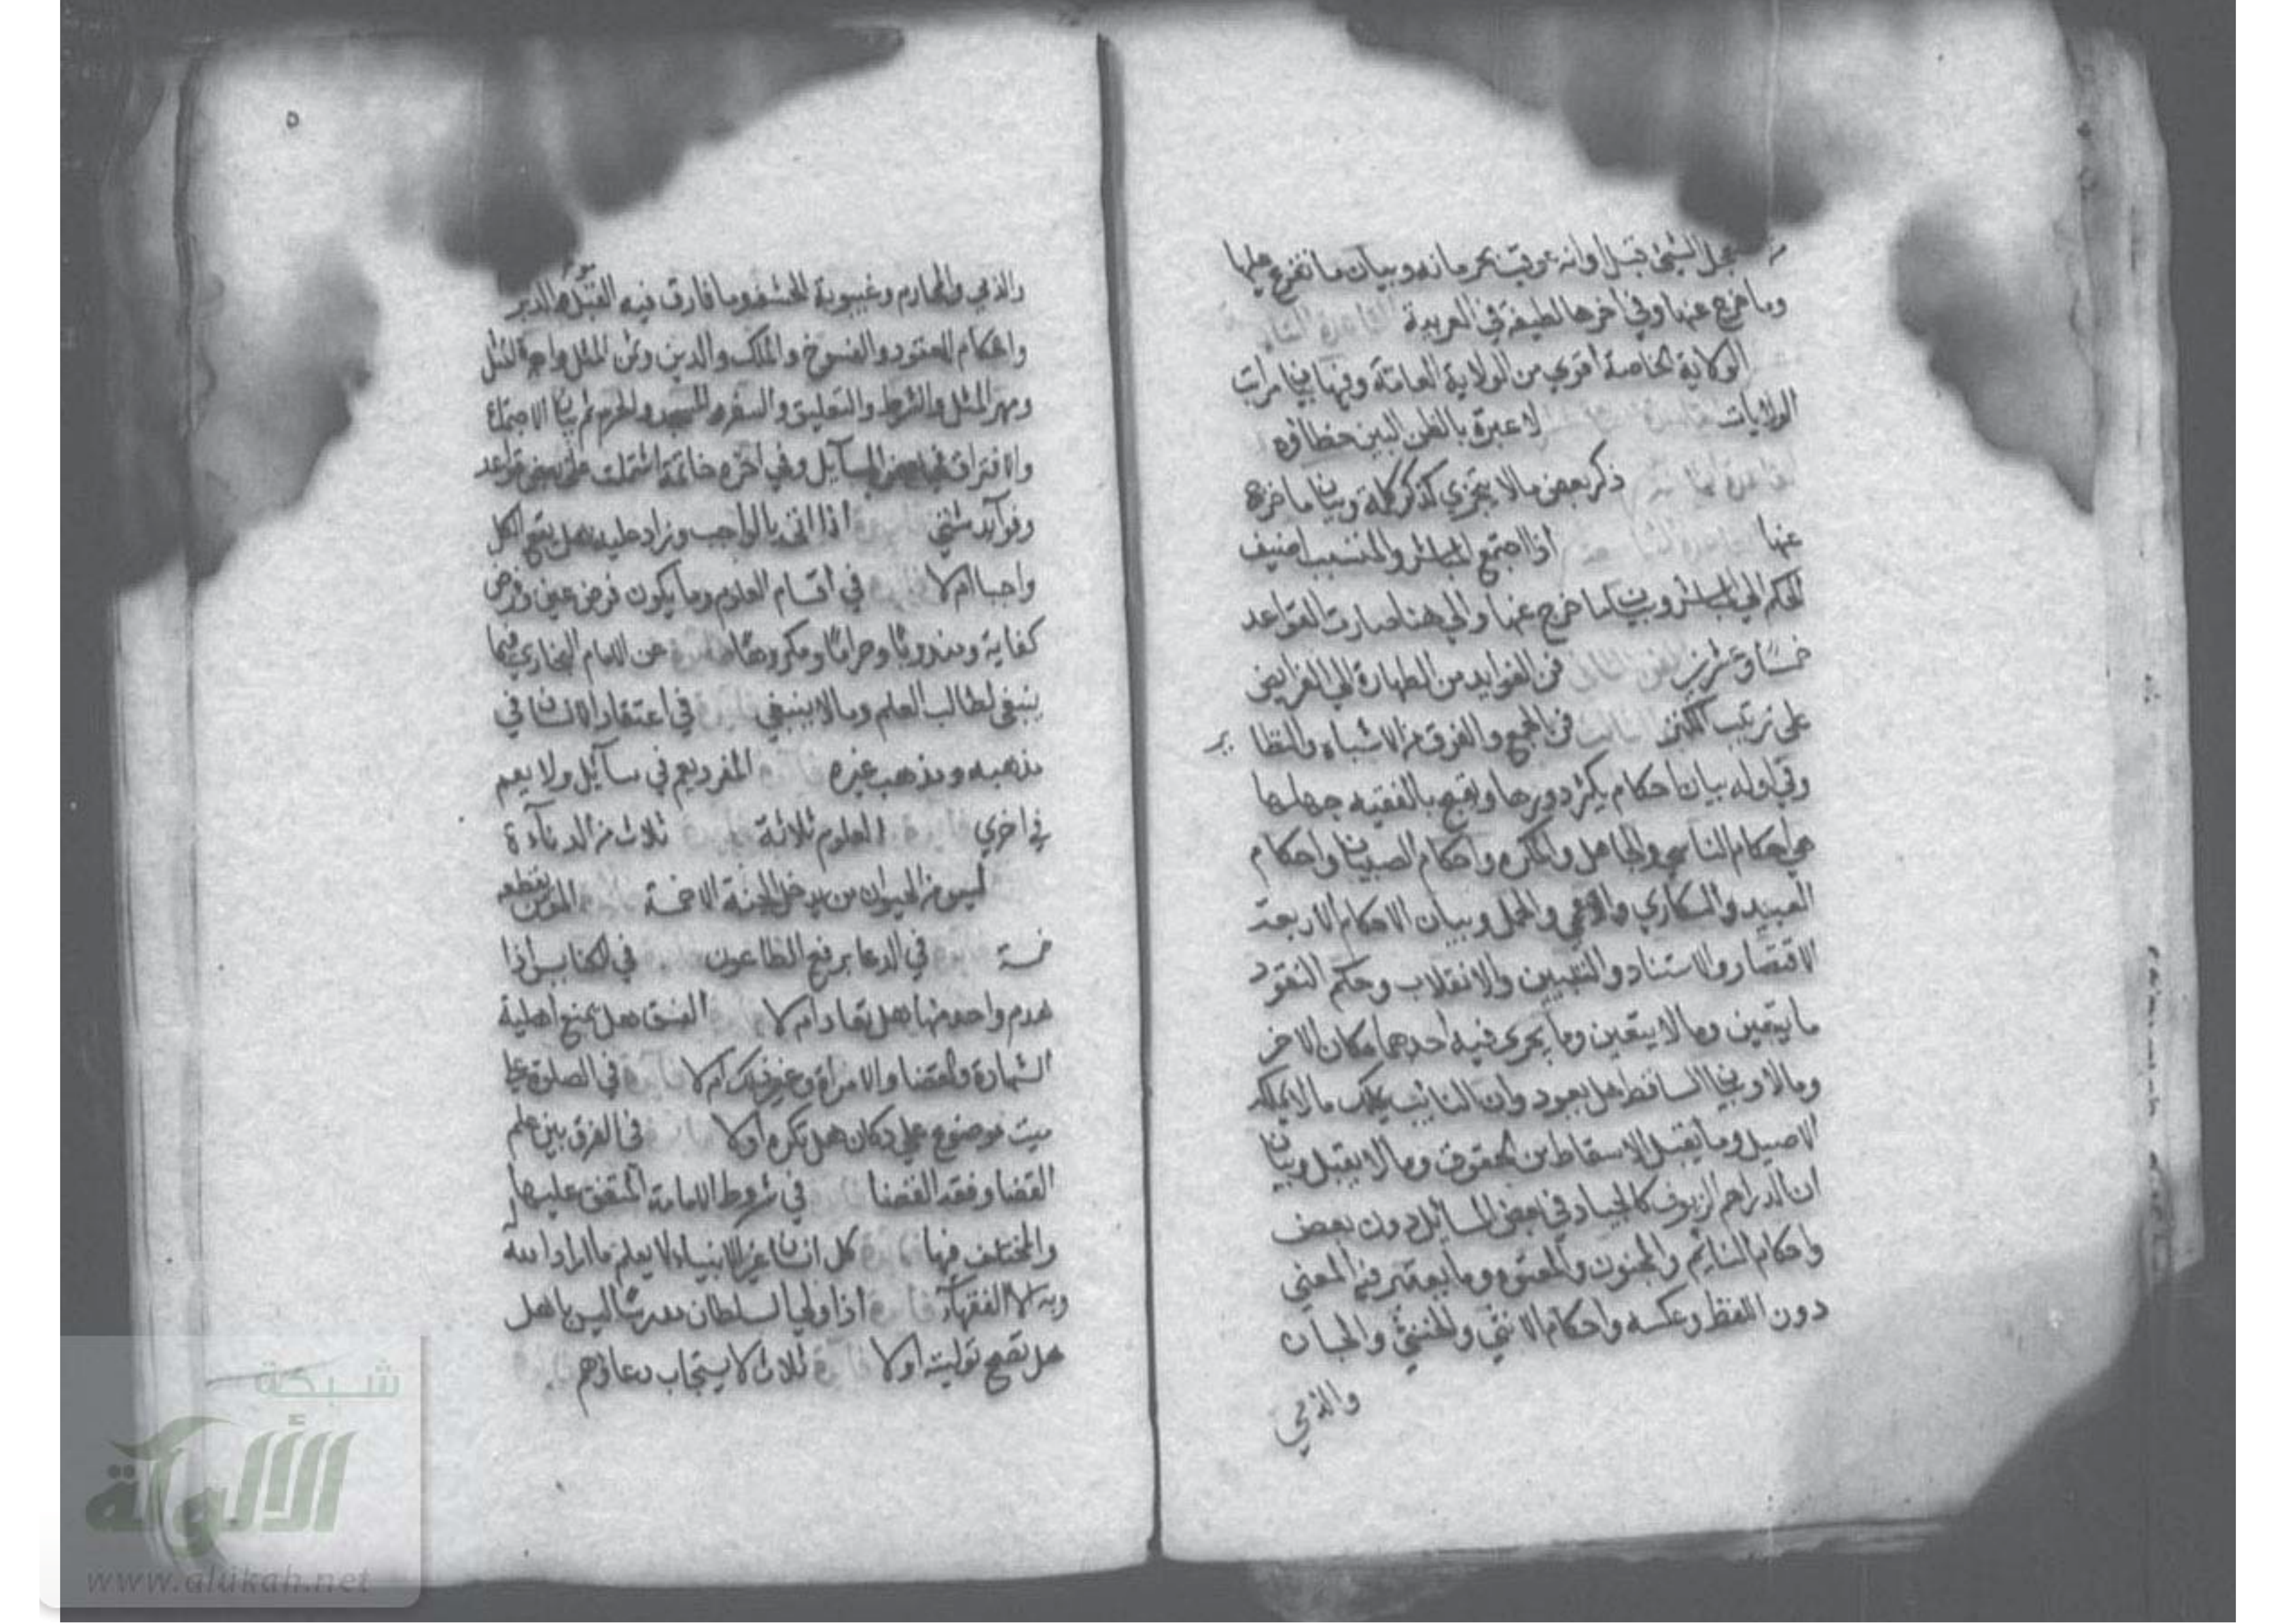 الشيئ قبل اوانه عوقب بحرمانه وبيان ما تفرع عليها
وما خرج عنها وفي اخرها لطيفة في العربية
الولاية الخاصة اقوي من الولاية العامة وفيها بيان مراتب
الولايات لا عبرة بالظن البين خطاؤه
ذكر بعض ما لا يتجزي كذكر كله وبيان ما خرج
عنها اذا اجتمع المباشر والمتسبب اضيف
الحكم الي المباشر وبيان ما خرج عنها والي هنا صارت القواعد
خمسا وعشرين فن الفوايد من الطهارة الي الفرايض
علي ترتيب الكنز فن الجمع والفرق من الاشباه والنظا
ير
وفي اوله بيان احكام يكثر دورها ويقبح بالفقيه جهلها
هي احكام الناسي والجاهل والمكره واحكام الصبيان واحكام
العبيد والسكاري والاعمي والحمل وبيان الاحكام الاربعة
الاقتصار والاستناد والتبيين والانقلاب وحكم النقود
ما يتعين وما لا يتعين وما يجري فيه احدهما مكان الاخر
وما لا وبيان الساقط هل يعود وان النائب يملك ما لا يملكه
الاصيل وما يقبل الاسقاط من الحقوق وما لا يقبل وبيان
ان الدراهم الزيوف كالجياد في بعض المسائل دون بعض
واحكام النايم والمجنون والمعتوه وما يعتبر فيه المعني
دون اللفظ وعكسه واحكام الانثي والخنثي والجان
والذمي
٥
والذمي والمحارم وغيبوبة الحشفة وما فارق فيه القبل الدبر
واحكام العقود والفسوخ والملك والدين وثمن المثل واجرة المثل
ومهر المثل والشرط والتعليق والسفر والمسجد والحرم ثم بيان الاجتماع
والافتراق في بعض المسآيل وفي اخره خاتمة اشتملت علي بعض قواعد
وفوآيد شتي اذا اتي بالواجب وزاد عليه هل يقع الكل
واجبا ام لا في اقسام العلوم وما يكون فرض عين وفرض
كفاية ومندوبا وحراما ومكروها عن الامام البخاري فيما
ينبغي لطالب العلم وما لا ينبغي في اعتقاد الانسان في
مذهبه ومذهب غيره المفرد يعم في مسآيل ولا يعم
في اخري العلوم ثلاثة ثلاث من الدنآءة
ليس من الحيوان من يدخل الجنة الا خمسة المؤمن يقطعه
خمسة في الدعا برفع الطاعون في الكنايس اذا
هدم واحد منها هل يعاد ام لا الفسق هل يمنع اهلية
الشهادة والقضا والامراة وغير ذلك ام لا في الصلوة علي
ميت موضوع علي دكان هل يكره او لا في الفرق بين علم
القضا وفقه القضا في شروط الامامة المتفق عليها
والمختلف فيها كل انسان غير الانبياء لا يعلم ما اراد الله
به الا الفقهآء اذا ولي السلطان مدرسا ليس باهل
هل تصح توليته او لا ثلاث لا يستجاب دعاؤهم
شبكة
الألوكة
www.alukah.net